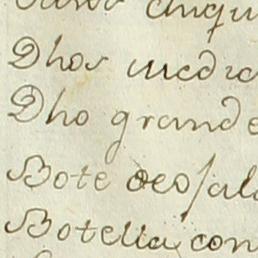 Dhos medic
Dho grande
Bote de osal
Botella con